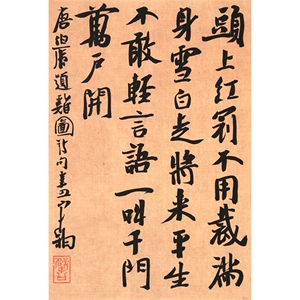 頭上紅冠不用裁滿
身雪白走將来平生
不敢輕言語一叫千門
萬户開
唐伯虎道雞圖詩句